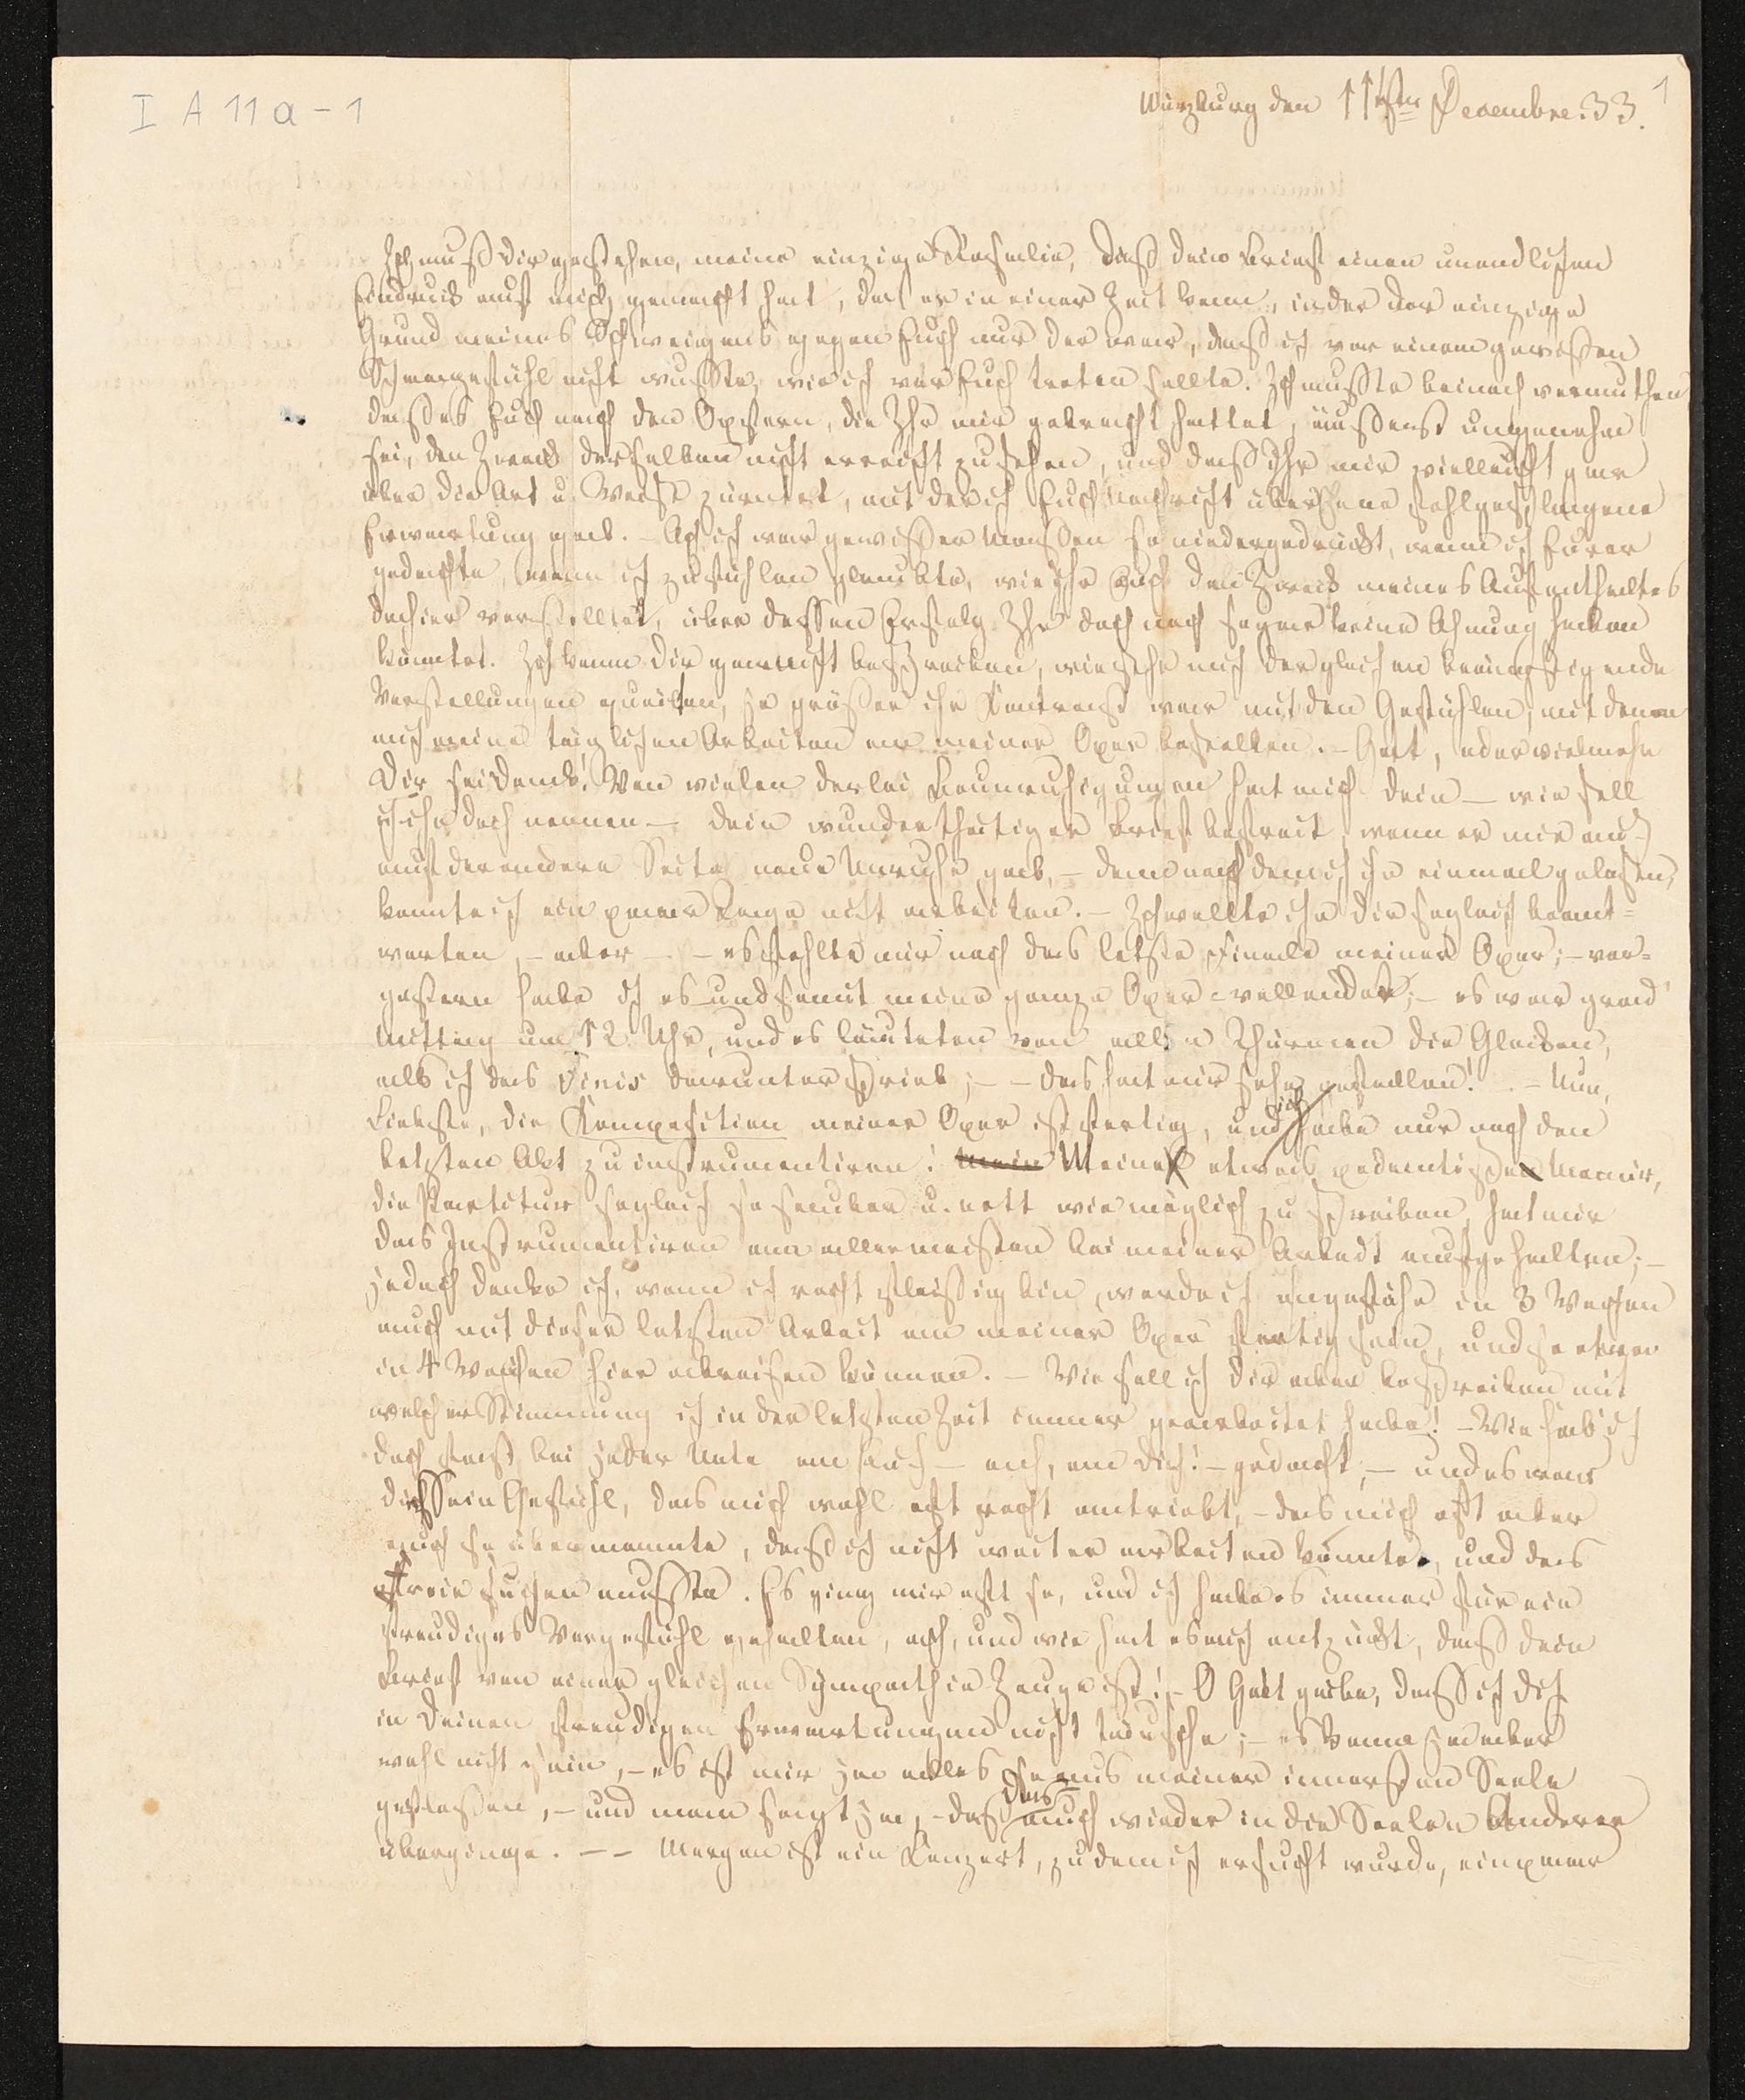 I A 11 a - 1
1
Würzburg den 11ten Decembre. 33.
Ich muß dir gestehen, meine einzige Rosalie, daß dein Brief einen unendlichen
Eindruck auf mich gemacht hat, da er in einer Zeit kam, in der der einzige
Grund meines Schweigens gegen Euch nur der war, daß ich vor einem gewissen
Schmerzgefühl nicht wußte, wie ich vor Euch treten sollte. Ich mußte beinah vermuthen
daß es Euch nach den Opfern, die Ihr mir gebracht hattet, äußerst unangenehm
sei, den Zweck derselben nicht erreicht zu sehen, und daß Ihr mir vielleicht gar
über die Art u. Weise zürntet, mit der ich Euch Nachricht über jene fehlgeschlagene
Erwartung gab. – Ach ich war gewisser Maßen so niedergedrückt, wenn ich Eurer
gedachte, wenn ich zu fühlen glaubte, wie Ihr Euch den Zweck meines Aufenthaltes
dahier vorstelltet, über dessen Erfolg Ihr doch noch sogar keine Ahnung haben
konntet. Ich kann dir gar nicht beschreiben, wie sehr mich dergleichen beängstigende
Vorstellungen quälten, je größer ihr Kontrast war mit den Gefühlen, mit denen
mich meine täglichen Arbeiten an meiner Oper beseelten. – Gott, oder vielmehr
Dir sei Dank! Von vielen derlei Beunruhigungen hat mich dein – wie soll
ich ihn doch nennen – dein wunderthätiger Brief befreit, wenn er mir auch
auf der andern Seite neue Unruhe gab, – denn nachdem ich ihn einmal gelesen,
konnte ich ein paar Tage nicht arbeiten. – Ich wollte ihn dir sogleich beant=
worten, – aber – – es fehlte mir noch das letzte Finale meiner Oper; – vor=
gestern habe ich es – und somit meine ganze Oper – vollendet; – es war grad'
Mittag um 12 Uhr, und es läuteten von allen Thürmen die Glocken,
als ich das Finis darunter schrieb; – – das hat mir sehr gefallen! – Nun,
Liebste, die Komposition meiner Oper ist fertig, und ich habe nur noch den
letzten Akt zu instrumentiren! Mein Meine etwas pedantische Manier,
die Partitur sogleich so sauber u. nett wie möglich zu schreiben, hat mir
das Instrumentiren am allermeisten bei meiner Arbeit aufgehalten; –
jedoch denke ich, wenn ich recht fleißig bin, werde ich ungefähr in 3 Wochen
auch mit dieser letzten Arbeit an meiner Oper fertig sein, und so etwa
in 4 Wochen hier abreisen können. – Wie soll ich dir aber beschreiben mit
welcher Stimmung ich in der letzten Zeit immer gearbeitet habe! – Wie hab' ich
doch fast bei jeder Note an Euch – ach, an Dich! – gedacht, – und es war
dieß ein Gefühl, das mich wohl oft recht antrieb, – das mich oft aber
auch so übermannte, daß ich nicht weiter arbeiten konnte, und das
Freie suchen mußte. Es ging mir oft so, und ich habe es immer für ein
freudiges Vorgefühl gehalten, ach, und wie hat es mich entzückt, daß dein
Brief von einer gleichen Sympathie Zeuge ist! – O Gott gebe, daß ich dich
in Deinen freudigen Erwartungen nicht täusche; – es kann ja aber
wohl nicht sein, – es ist mir ja alles so aus meiner innersten Seele
geflossen, – und man sagt ja, – daß das auch wieder in die Seelen Anderer
überginge. – – Morgen ist ein Konzert, zu dem ich ersucht wurde, ein paar